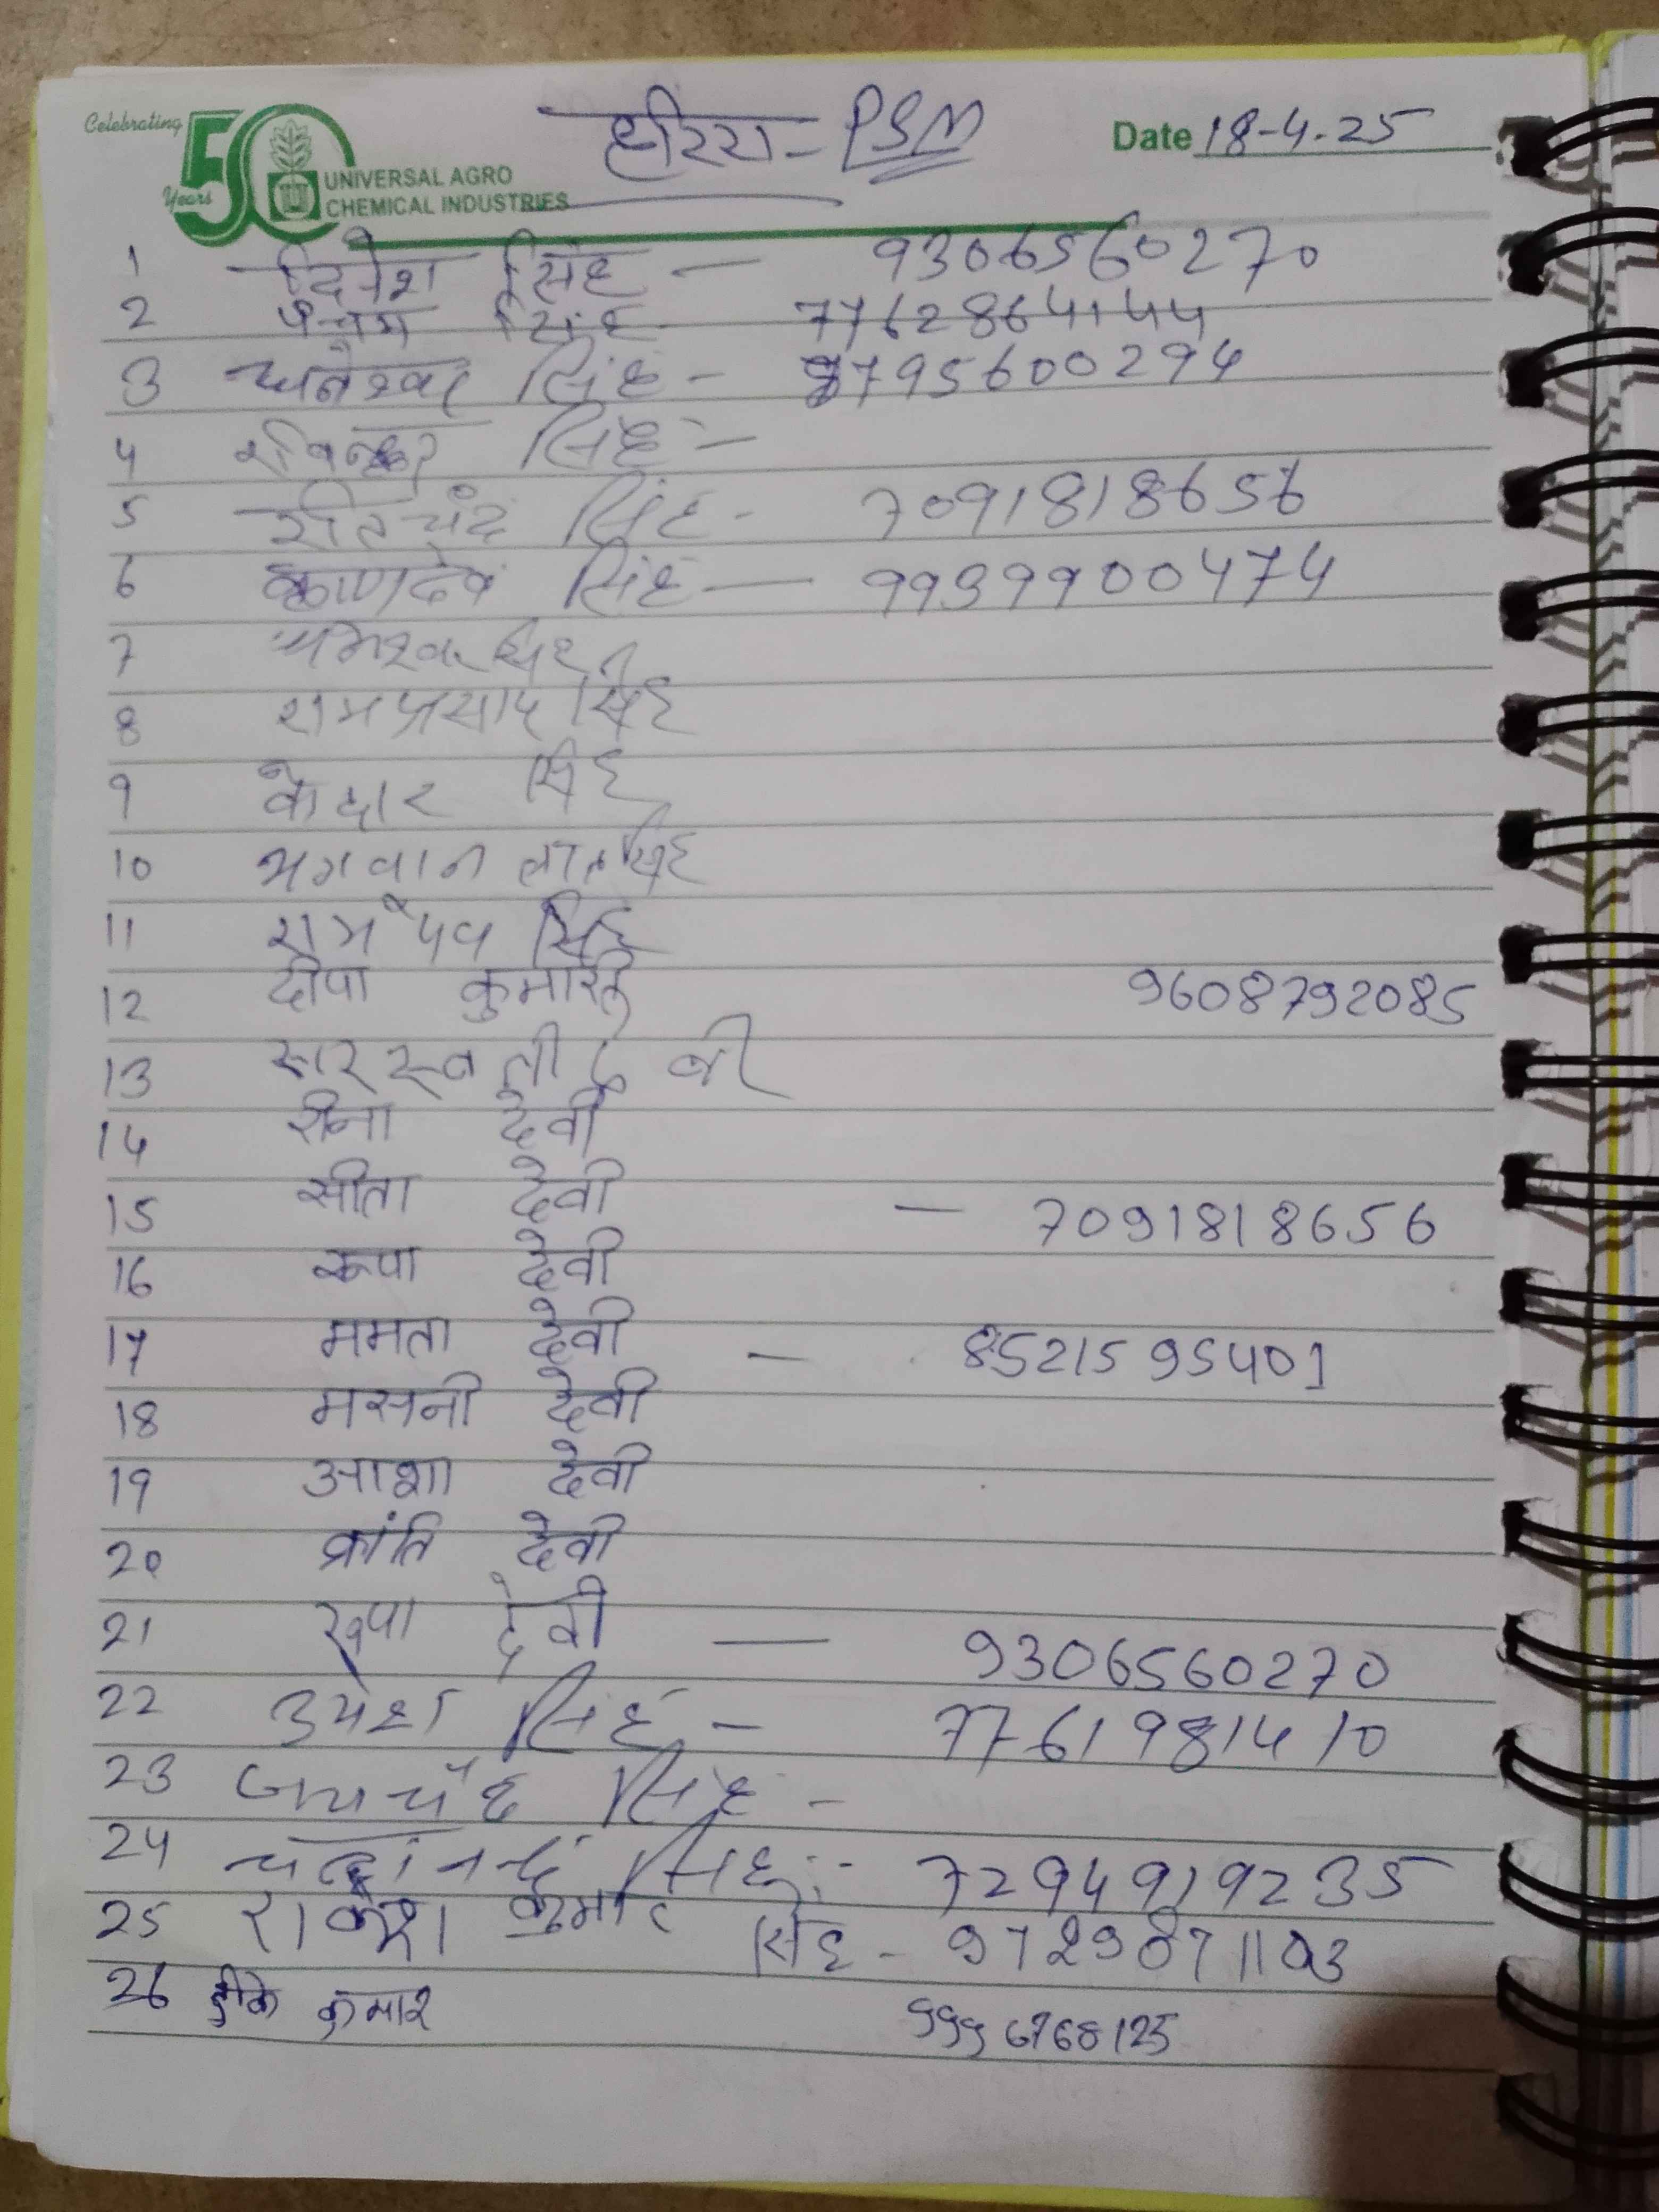 Celebrating 50 Years
UNIVERSAL AGRO
CHEMICAL INDUSTRIES
PSM
Date 18-4-25
1 दिनेश सिंह — 9306560270
2 पन्चम सिंह - 7762864144
3 धनेश्वर सिंह - 7795600294
4 सिंह -
5 सिंह - 7091818656
6 सिंह — 9939900474
7 सिंह
8 रामप्रसाद सिंह
9 केदार सिंह
10 भगवान लाल सिंह
11 सिंह
12 दीपा कुमारी 9608792085
13 सरस्वती देवी
14 रीना देवी
15 सीता देवी — 7091818656
16 रूपा देवी
17 ममता देवी — 8521595401
18 मसनी देवी
19 आशा देवी
20 क्रांति देवी
21 रूपा देवी — 9306560270
22 उमेश सिंह — 7761981410
23 जयचँद सिंह -
24 सिंह :- 7294919235
25 राकेश कुमार सिंह -
26 कुमार 9996768125